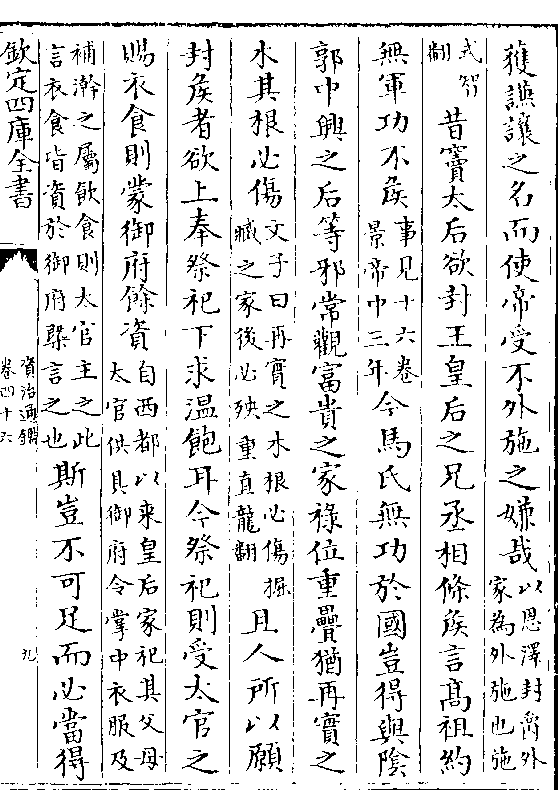 獲謙讓之名而使帝受不外施之嫌哉以恩澤封爵外家為外施也施
式智翻昔竇太后欲封王皇后之兄丞相條侯言高祖約
無軍功不侯事見十六卷景帝中三年今馬氏無功於國豈得與陰
郭中興之后等邪常觀富貴之家祿位重疊猶再實之
木其根必傷文子曰再實之木根必傷掘臧之家後必殃重直龍翻且人所以願
封侯者欲上奉祭祀下求温飽耳今祭祀則受太官之
賜衣食則蒙御府餘資自西都以来皇后家祀其父母太官供具御府令掌中衣服及
補澣之屬飲食則太官主之此言衣食皆資於御府槩言之也斯豈不可足而必當得
欽定四庫全書
資治通鑑
卷四十六
九